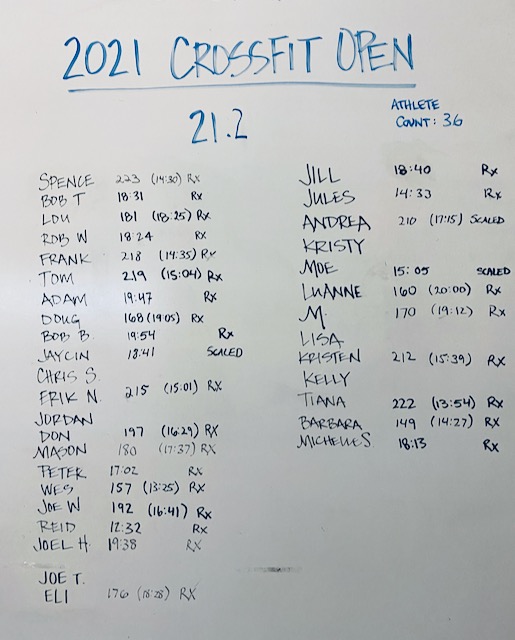 2021 CROSSFIT OPEN
21.2
ATHLETE
COUNT: 36
SPENCE 223 (14:30) Rx
BOB T 18:31 Rx
LOU 181 (18:25) Rx
ROB W 18:24 Rx
FRANK 218 (14:35) Rx
TOM 219 (15:04) Rx
ADAM 19:47 Rx
DOUG 168 (19:05) Rx
BOB B. 19:54 Rx
JAYCIN 18:41 SCALED
CHRIS S.
ERIK N. 215 (15:01) RX
JORDAN
DON 197 (16:29) RX
MASON 180 (17:37) RX
PETER 17:02 Rx
WES 157 (13:25) RX
JOE W 192 (16:41) Rx
REID 12:32 Rx
JOEL H. 19:38 RX
JOE T.
ELI 176 (18:28) RX
JILL 18:40 Rx
JULES 14:33 Rx
ANDREA 210 (17:15) SCALED
KRISTY
MOE 15:05 SCALED
LUANNE 160 (20:00) Rx
M. 170 (19:12) Rx
LISA
KRISTEN 212 (15:39) Rx
KELLY
TIANA 222 (13:54) Rx
BARBARA 149 (14:27) Rx
MICHELLE S. 18:13 Rx